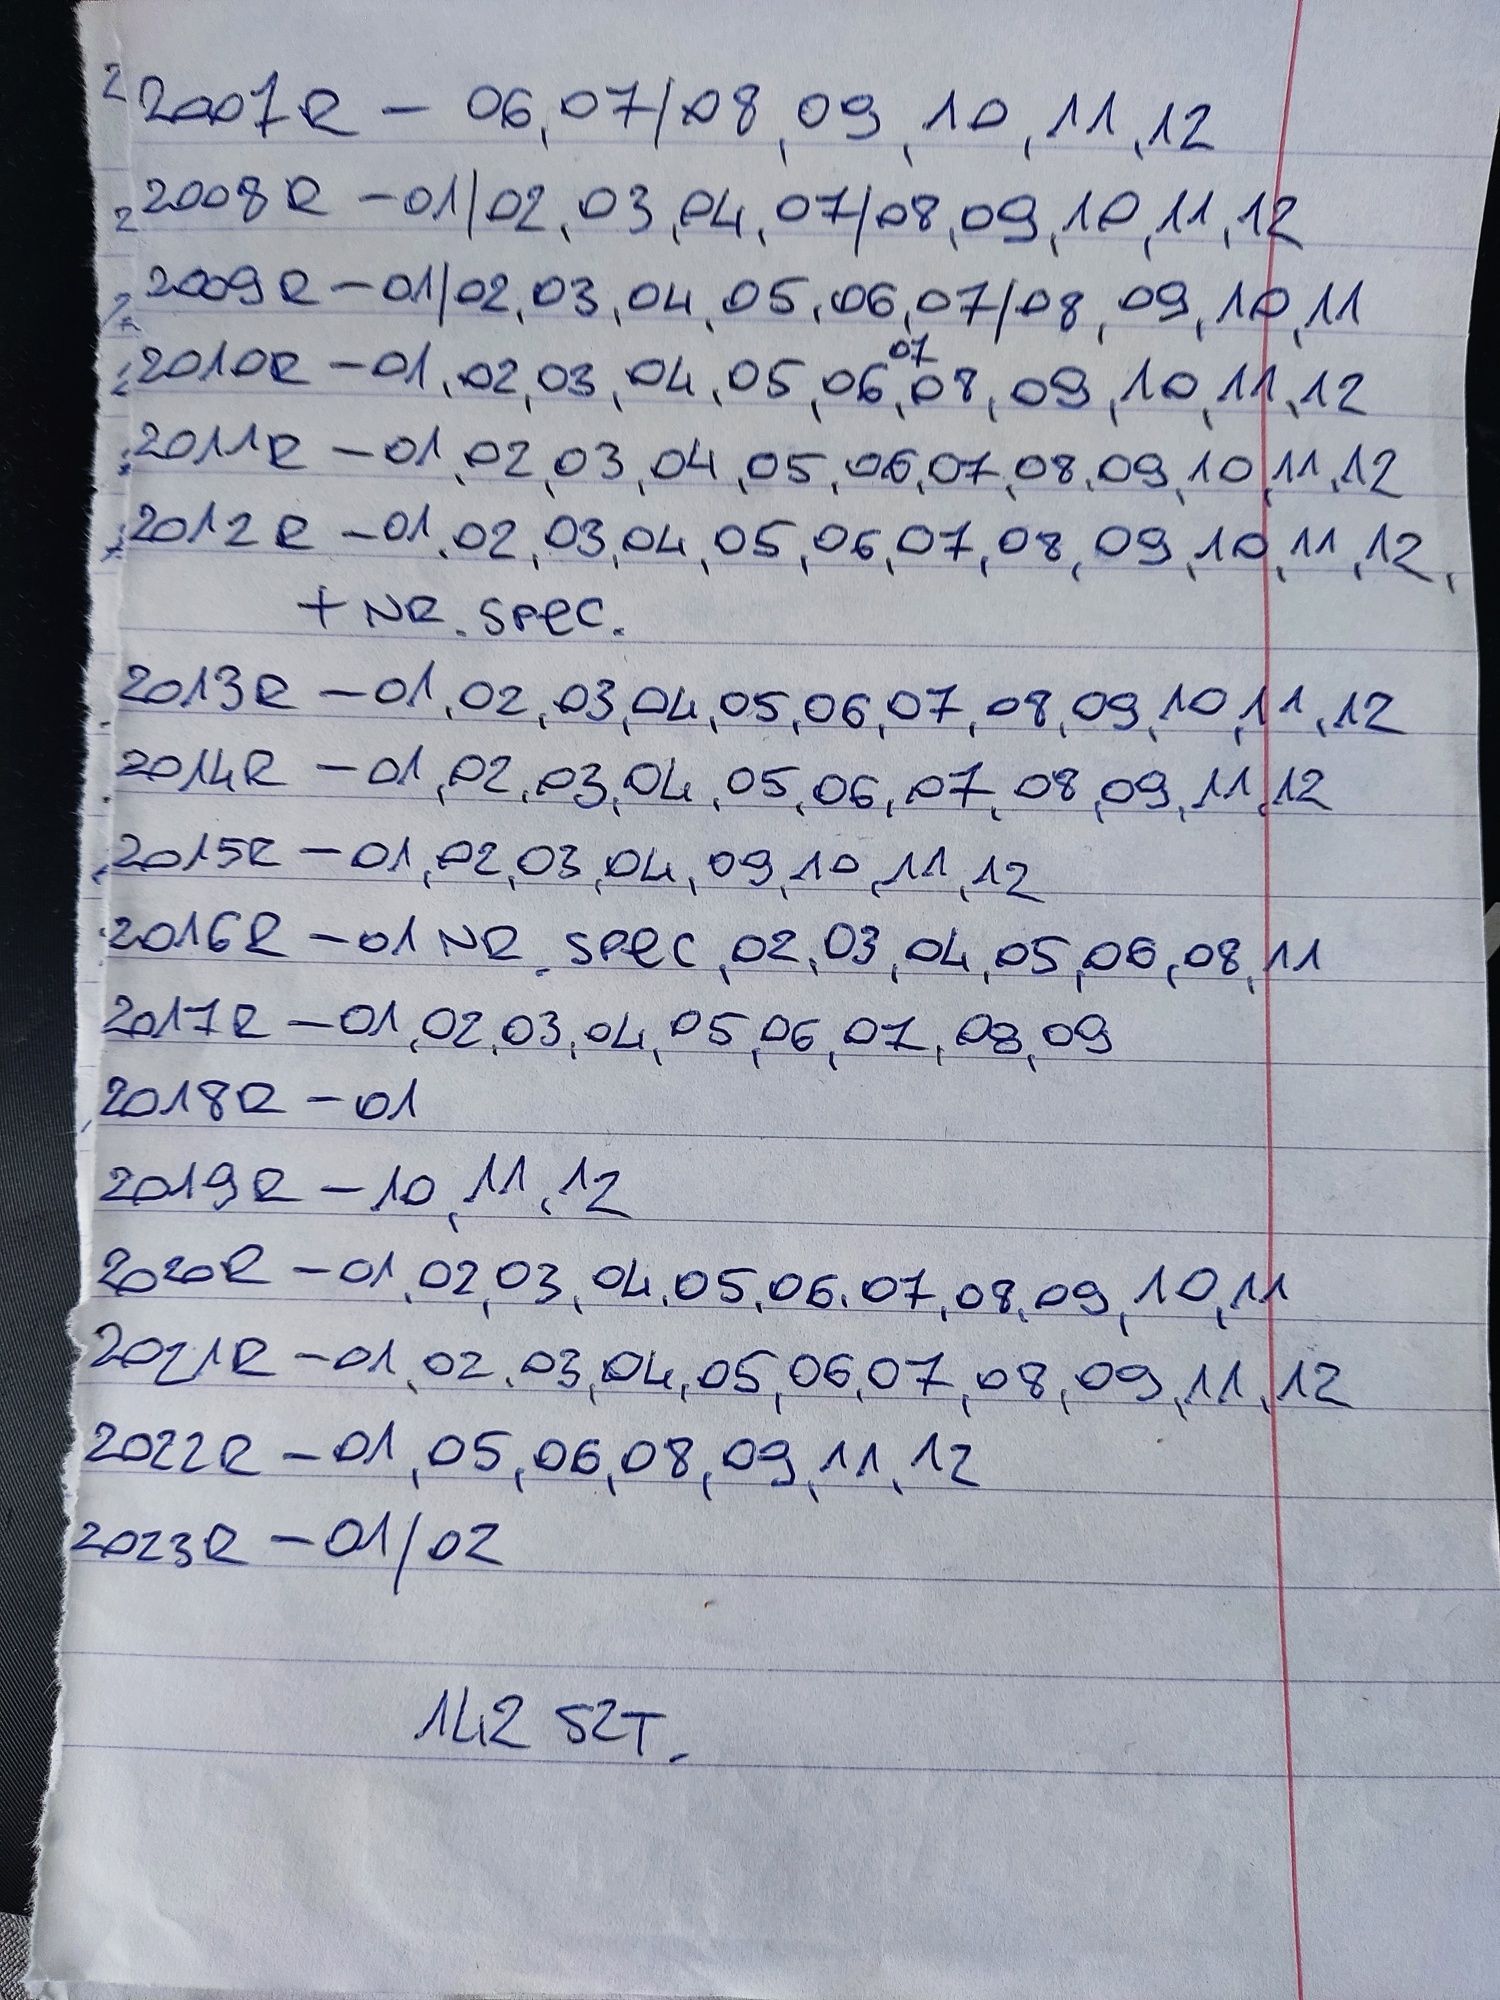 2007R - 06, 07/08, 09, 10, 11, 12
2008R - 01/02, 03, 04, 07/08, 09, 10, 11, 12
2009R - 01/02, 03, 04, 05, 06, 07/08, 09, 10, 11
2010R - 01, 02, 03, 04, 05, 06, 07 08, 09, 10, 11, 12
2011R - 01, 02, 03, 04, 05, 06, 07, 08, 09, 10, 11, 12
2012R - 01, 02, 03, 04, 05, 06, 07, 08, 09, 10, 11, 12,
+ NR. SPEC.
2013R - 01, 02, 03, 04, 05, 06, 07, 08, 09, 10, 11, 12
2014R - 01, 02, 03, 04, 05, 06, 07, 08, 09, 11, 12
2015R - 01, 02, 03, 04, 09, 10, 11, 12
2016R - 01 NR. SPEC, 02, 03, 04, 05, 06, 08, 11
2017R - 01, 02, 03, 04, 05, 06, 07, 08, 09
2018R - 01
2019R - 10, 11, 12
2020R - 01, 02, 03, 04, 05, 06, 07, 08, 09, 10, 11
2021R - 01, 02, 03, 04, 05, 06, 07, 08, 09, 11, 12
2022R - 01, 05, 06, 08, 09, 11, 12
2023R - 01/02
142 SZT.